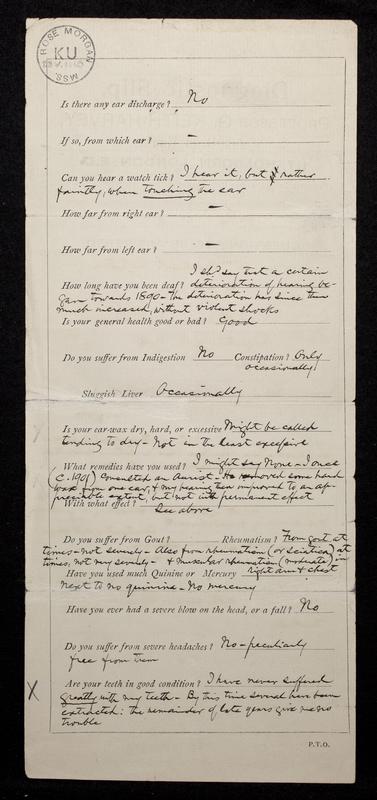 ROSE MORGAN
KU
MSS.
Is there any ear discharge? No
If so, from which ear? –
Can you hear a watch tick? I hear it, but rather
faintly, when touching the ear
How far from right ear? –
How far from left ear? –
I shd say that a certain
How long have you been deaf? deterioration of hearing be-
gan towards 1890 – the deterioration has since then
much increased, without violent shocks
Is your general health good or bad? Good
Do you suffer from Indigestion No Constipation? Only
occasionally
Sluggish Liver Occasionally
Is your ear-wax dry, hard, or excessive Might be called
tending to dry – Not in the least excessive
What remedies have you used? I might say None – I once
(c. 1901) consulted an Aurist – He removed some hard
wax from one ear, & my hearing then improved to an ap-
preciable extent, but not with permanent effect
With what effect? See above
Do you suffer from Gout? Rheumatism? From gout at
times – not severely – Also from rheumatism (or sciatica) at
times, not very severely – & muscular rheumatism (moderate) in
Have you used much Quinine or Mercury right arm & chest
Next to no quinine – No mercury
Have you ever had a severe blow on the head, or a fall? No
Do you suffer from severe headaches? No – peculiarly
free from them
X Are your teeth in good condition? I have never suffered
greatly with my teeth – By this time several have been
extracted: the remainder of late years give me no
trouble
P.T.O.